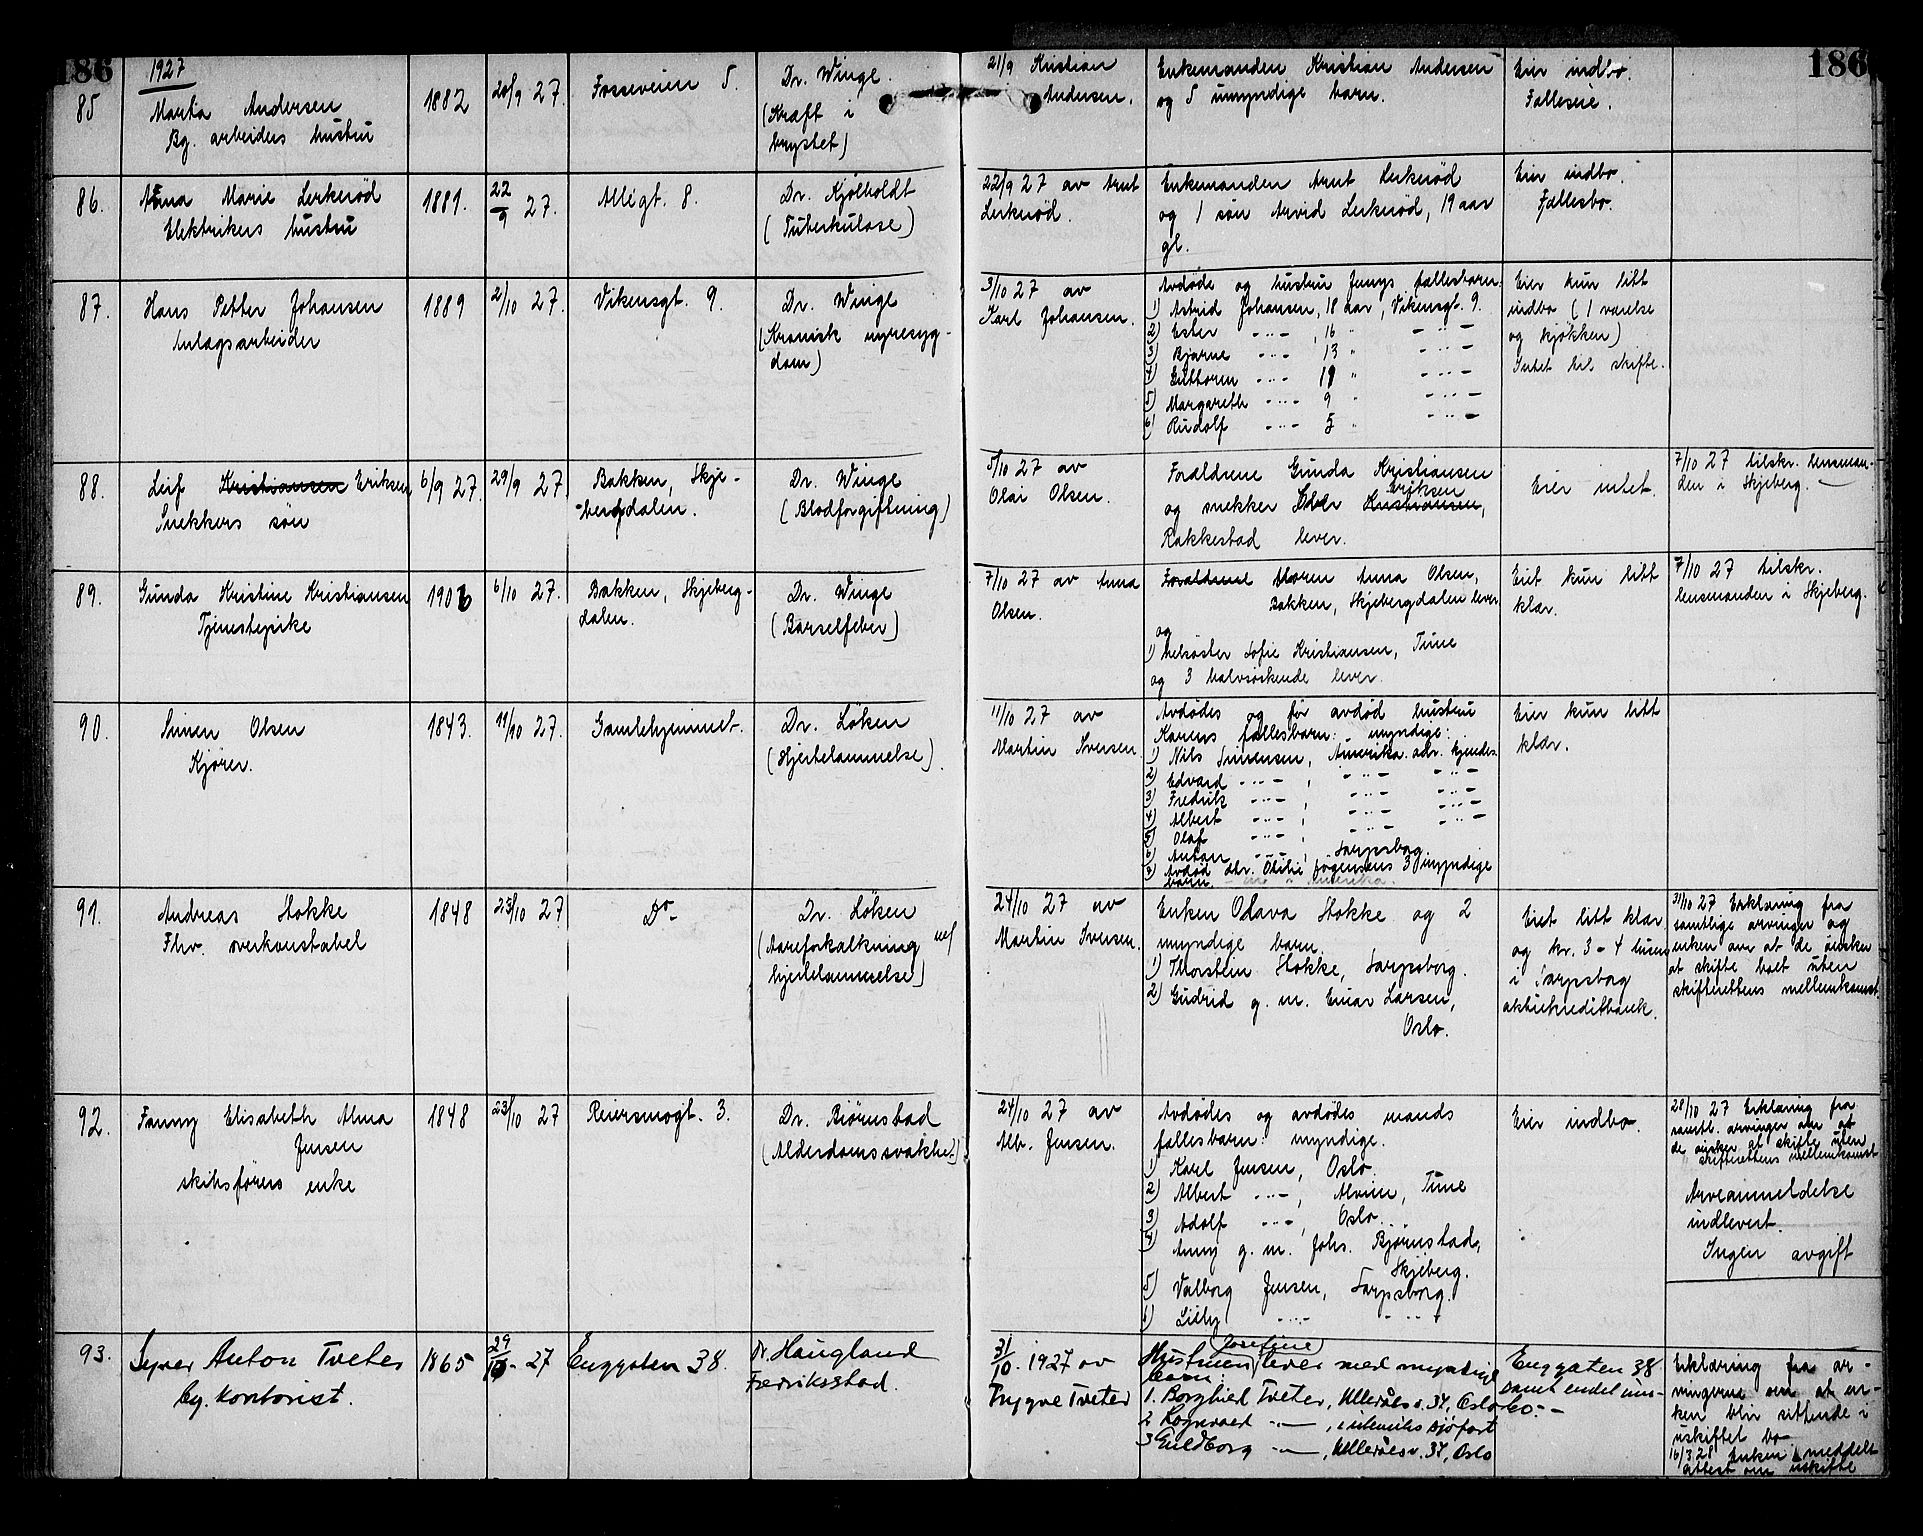 186
186
1927
85
Marta Andersen
Bg. arbeiders hustru
1882
20/9 27.
Fosseveien 5.
Dr. Winge.
(Kræft i
brystet)
21/9 Kristian
Andersen.
Enkemanden Kristian Andersen
og 5 umyndige barn.
Eier indbo.
Fælleseie.
86.
Anna Marie Lerkerød
Elektrikers hustru
1881.
22/9 27.
Allégt. 8.
Dr. Kjølholdt
(Tuberkulose)
22/9 27 av Arnt
Lerkerød.
Enkemanden Arnt Lerkerød
og 1 søn Arvid Lerkerød, 19 aar
gl.
Eier indbo.
Fællesbo.
87.
Hans Petter Johansen
Anlægsarbeider
1889
2/10 27.
Vikensgt. 9.
Dr. Winge
(Kronisk nyresyg-
dom)
3/10 27 av
Karl Johansen.
Avdøde og hustru Jennys fællesbarn:
1) Astrid Johansen, 18 aar, Vikensgt. 9.
2) Ester -"- , 16 " -"-
3) Bjarne -"- 13 " -"-
4) Guthorm -"- 11 " -"-
5) Margareth -"- 9 " -"-
6) Rudolf -"- 5 " -"-
Eier kun litt
indbo (1 værelse
og kjøkken)
Intet til skifte.
88.
Leif Kristiansen Eriksen
Snekkers søn
6/9 27.
29/9 27
Bakken, Skje-
-bergdalen.
Dr. Winge
(Blodforgiftning)
5/10 27 av
Olai Olsen.
Forældrene Gunda Kristiansen
og snekker Eriksen Kristiansen,
Rakkestad lever.
Eier intet.
7/10 27 tilskr. lensman-
den i Skjeberg.
89.
Gunda Kristine Kristiansen
Tjenestepike
1906
6/10 27.
Bakken, Skjeberg-
dalen.
Dr. Winge
(Barselfeber)
7/10 27 av Anna
Olsen.
Forældrene Moren Anna Olsen,
Bakken, Skjebergdalen lever
og
1) Helsøster Sofie Kristiansen, Tune
og 3 halvsøskende lever.
Eiet kun litt
klær.
7/10 27 tilskr.
lensmanden i Skjeberg.
90.
Simen Olsen
Kjører.
1843.
11/10 27.
Gamlehjemmet.
Dr. Løken
(Hjertelammelse).
11/10 27 av
Martin Iversen
Avdødes og før avdød hustru
Karens fællesbarn: myndige:
1) Nils Simensen, Amerika. adr. kjendes.
2) Edvard -"- , -"- -"-
3) Fredrik -"- , -"- -"-
4) Albert -"- , -"- -"-
5) Olaf -"- , -"- -"-
6) Anton -"- , Sarpsborg.
7) Avdød dtr. Otilie Jørgensens 3 umyndige
barn.
Eier kun litt
klær.
91.
Andreas Stokke
Fhv. overkonstabel
1848
23/10 27
Do-
Dr. Løken
(Aareforkalkning m/
hjertelammelse)
24/10 27 av
Martin Iversen.
Enken Olava Stokke og 2
myndige barn
1) Thorstein Stokke, Sarpsborg.
2) Gudrid g. m. Einar Larsen,
Oslo.
Eiet litt klær
og kr. 3-4 tusen
i Sarpsborg
aktiekreditbank.
31/10 27 Erklæring fra
samtlige arvinger og
enken om at de ønsker
at skifte boet uten
skifterettens mellemkomst.
92.
Fanny Elisabeth Alma
Jensen
skibsførers enke
1848
23/10 27
Reiersmogt. 3.
Dr. Bjørnstad
(Alderdomssvakhet)
24/10 27 av
Alb. Jensen.
Avdødes og avdødes mands
fællesbarn: myndige.
1) Karl Jensen, Oslo.
2) Albert -"- , Alvim, Tune
3) Adolf -"- , Oslo.
4) Anny g. m. Johs. Bjørnstad,
Skjeberg.
5) Valborg Jensen, Sarpsborg.
6) Lilly -"- -"-
Eier indbo.
28/10 27 Erklæring fra
samtl. arvinger om at
de ønsker at skifte uten
skifterettens mellemkomst
Arveanmeldelse
indlevert.
Ingen avgift
93.
Syver Anton Tveter
bg. kontorist.
1865
29/10- 27
Enggaten 38.
Dr. Haugland
Fredriksstad.
31/10. 1927 av
Trygve Tveter
Hustruen Josefine lever med myndige
barn:
1. Borghild Tveter, Ullevålsv. 37, Oslo
2 Ragnvald -"- , i utenriks sjøfart
3 Guldborg -"- , Ullevålsv. 37, Oslo
Enggaten 38
samt endel inn-
bo.-
Erklæring fra ar-
vingerne om at en-
ken blir sittende i
uskiftet bo
16/3 28 Enken meddelt
attest om uskifte